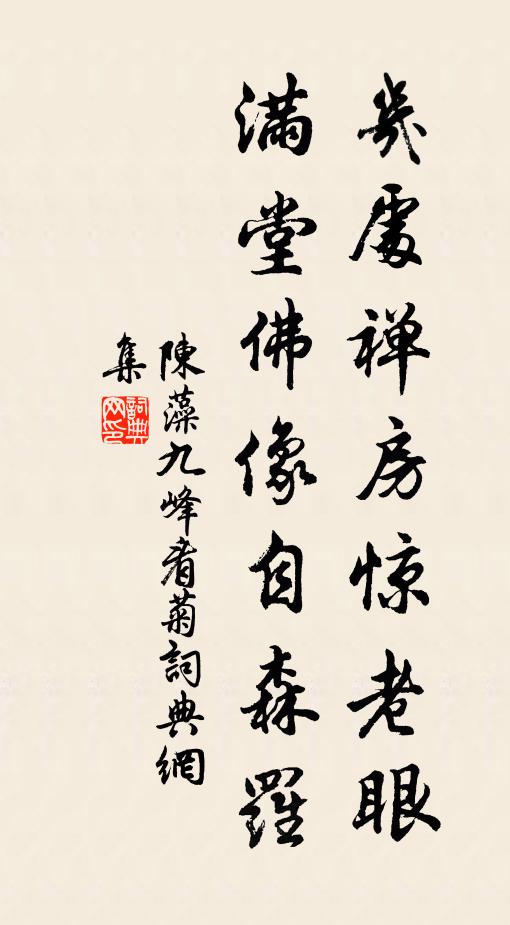 幾處禅房惊老眼
滿堂佛像自森羅
陳藻九峰看菊詞典網
集
詞典
网印